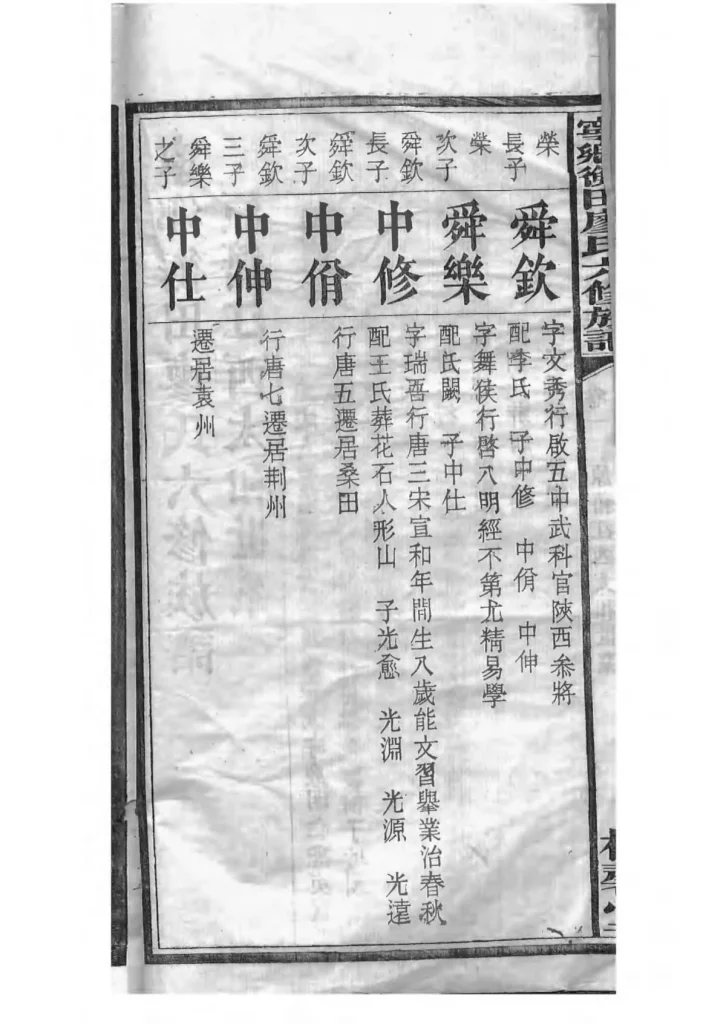 寧鄉衡田廖氏六修族記
榮
長子
舜欽
字文秀行啟五中武科官陝西叅將
配李氏 子中修 中佾 中伸
榮
次子
舜樂
字舞侯行啓八明經不第尤精易學
配氏闕 子中仕
舜欽
長子
中修
字瑞吾行唐三宋宣和年間生八歲能文習舉業治春秋
配王氏葬花石人形山 子光愈 光淵 光源 光遠
舜欽
次子
中佾
行唐五遷居桑田
舜欽
三子
中伸
行唐七遷居荆州
舜樂
之子
中仕
遷居袁州